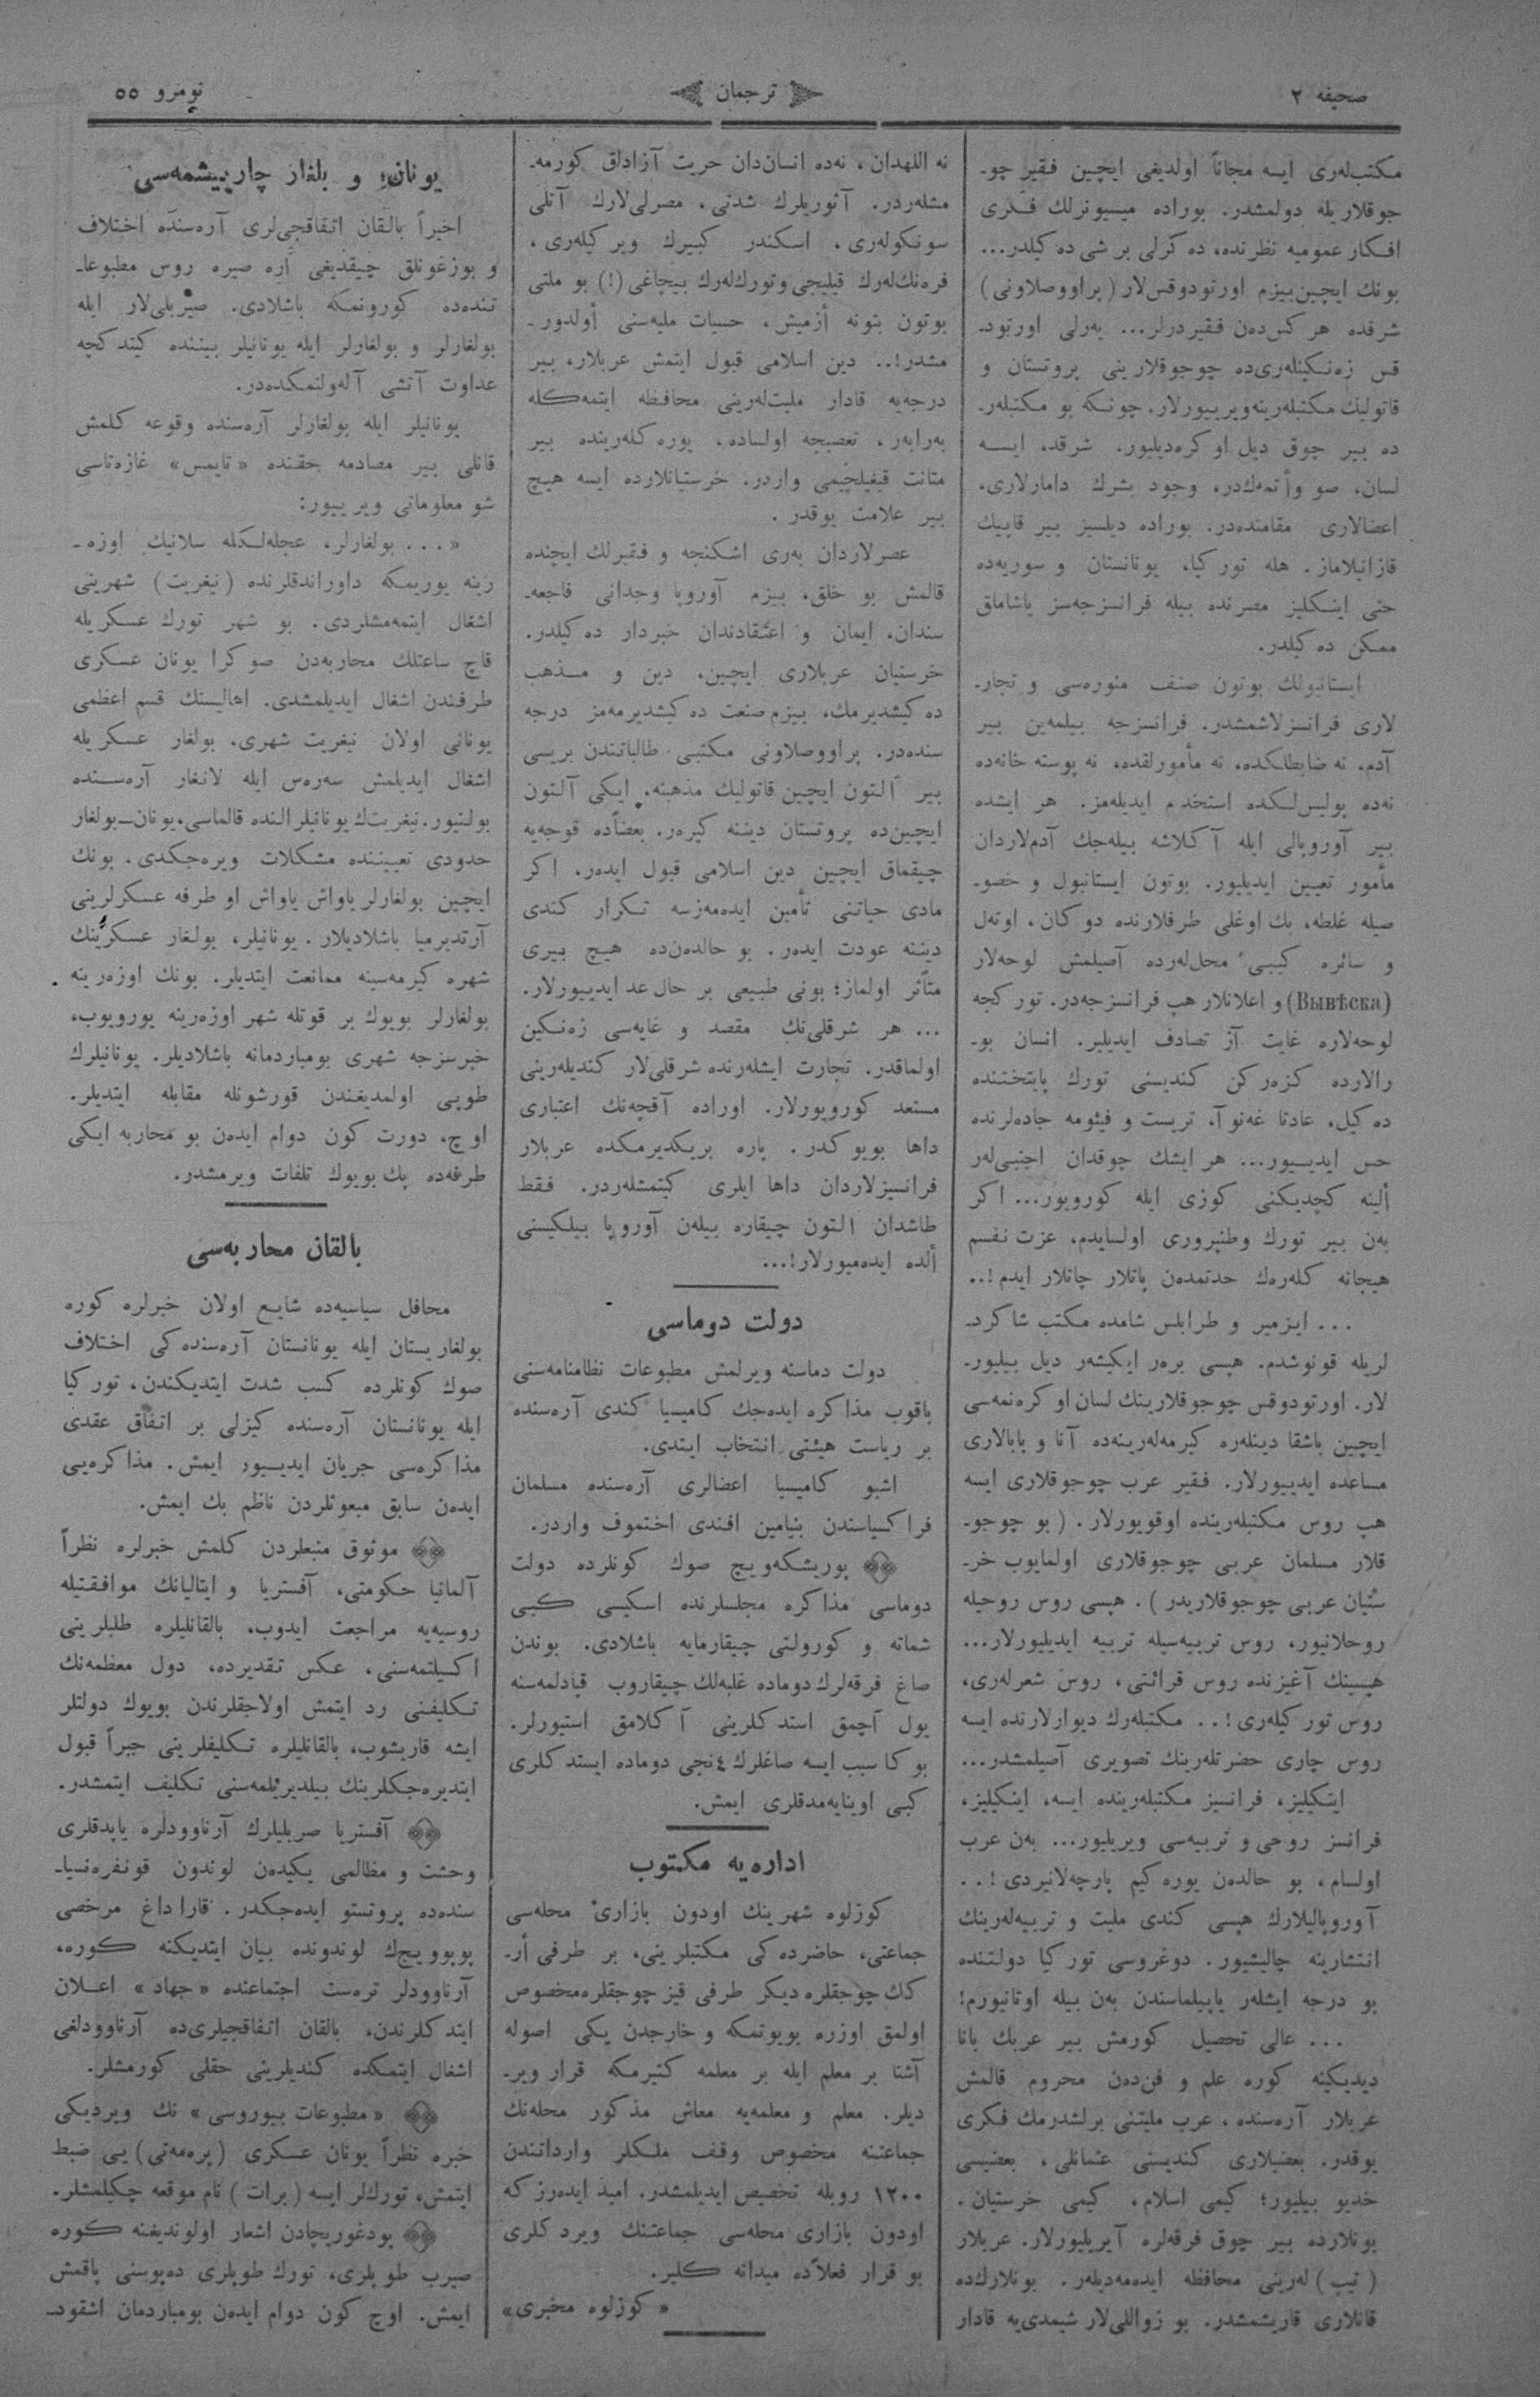 صحیفه ٢
ترجمان
نومرو ٥٥
مكتب‌لەری ایسه مجاناً اولدیغی ایچین فقیر چو-
جوقلاریله دولمشدر. بوراده میسیونرلك فكری
افكار عمومیه نظرنده، دە كرلی بر شی دە كیلدر...
بونك ایچین بیزم اورتودوقس‌لار (پراووصلاونی)
شرقده هر كس‌دەن فقیردرلر... یەرلی اورتود-
قس زەنكینلەری‌دە چوجوقلارینی پروتستان و
قاتولیك مكتبلەرینه ویرییورلار. چونكه بو مكتبلەر-
دە بیر چوق دیل اوكرەدیلیور. شرقده ایسه
لسان، صو وأتمەك‌در، وجود بشرك دامارلاری،
اعضالاری مقامنده‌در. بوراده دیلسیز بیر قاپیك
قازانیلاماز. هله توركیا، یونانستان و سوریەدە
حتی اینكلیز مصرنده بیله فرانسزجەسز یاشاماق
ممكن دە كیلدر.
ایستانبولك بوتون صنف منورەسی و تجار-
لاری فرانسزلاشمشدر. فرانسزجه بیلمەین بیر
آدم، نه ضابطلكده، نه مأمورلقده، نه پوسته خانەدە
نەدە پولیس‌لكده استخدم ایدیلەمز. هر ایشده
بیر آوروپالی ایله آكلاشه بیلەجك آدم‌لاردان
مأمور تعیین ایدیلیور. بوتون ایستانبول و خصو-
صیله غلطه، بك اوغلی طرفلارنده دوكان، اوتەل
و سائره كیبی محل‌لەردە آصیلمش لوحەلار
(Вывѣска) و اعلانلار هپ فرانسزجەدر. توركجه
لوحەلارە غایت آز تصادف ایدیلیر. انسان بو-
رالارده كزەركن كندیسنی تورك پایتختنده
دە كیل، عادتا غەنوآ، تریست و فیئومه جادەلرنده
حس ایدییور... هر ایشك چوقدان اجنبی‌لەر
ألینه كچدیكنی كوزی ایله كورویور... اكر
بەن بیر تورك وطنپروری اولسایدم، عزت نفسم
هیجانه كلەرەك حدتمدەن پاتلار چاتلار ایدم!..
... ایزمیر و طرابلس شامده مكتب شاكرد-
لریله قونوشدم. هپسی برەر ایكیشەر دیل بیلیور-
لار. اورتودوقس چوجوقلارینك لسان اوكرەنمەسی
ایچین باشقا دینلەرە كیرمەلەرینەدە آنا و بابالاری
مساعده ایدییورلار. فقیر عرب چوجوقلاری ایسه
هپ روس مكتبلەرینده اوقویورلار. (بو چوجو-
قلار مسلمان عربی چوجوقلاری اولمایوب خر-
ستیان عربی چوجوقلاریدر). هپسی روس روحیله
روحلانیور، روس تربیەسیله تربیه ایدیلیورلار...
هپسینك آغیزنده روس قرائتی، روس شعرلەری،
روس توركیلەری!.. مكتبلەرك دیوارلارنده ایسه
روس چاری حضرتلەرینك تصویری آصیلمشدر...
اینكلیز، فرانسیز مكتبلەرینده ایسه، اینكیلیز،
فرانسز روحی و تربیەسی ویریلیور... بەن عرب
اولسام، بو حالدەن یورەكیم پارچەلانیردی!..
آوروپالیلارك هپسی كندی ملیت و تربیەلەرینك
انتشارینه چالیشیور. دوغروسی توركیا دولتنده
بو درجه ایشلەر یاپیلماسندن بەن بیله اوتانیورم!
... عالی تحصیل كورمش بیر عربك بانا
دیدیكینه كوره علم و فن‌دەن محروم قالمش
عربلار آرەسنده، عرب ملیتنی برلشدرمك فكری
یوقدر. بعضیلاری كندیسنی عثمانلی، بعضیسی
خدیو بیلیور؛ كیمی اسلام، كیمی خرستیان.
بونلارده بیر چوق فرقەلرە آیریلیورلار. عربلار
(تیپ) لەرینی محافظه ایدەمەدیلەر. بونلارك‌دە
قانلاری قاریشمشدر. بو زواللی‌لار شیمدی‌یه قادار
نه اللهدان، نەدە انسان‌دان حریت آزادلق كورمە-
مشلەردر. آثوریلرك شدتی، مصرلی‌لارك آتلی
سونكولەری، اسكندر كبیرك ویركیلەری،
فرەنك‌لەرك قیلیجی وتورك‌لەرك بیچاغی (!) بو ملتی
بوتون بتونه أزمیش، حسیات ملیەسنی أولدور-
مشدر!.. دین اسلامی قبول ایتمش عربلار، بیر
درجەیه قادار ملیت‌لەرینی محافظه ایتمەكله
بەرابەر، تعصبجه اولسادە، یورەكلەریندە بیر
متانت قیغیلچیمی واردر. خرستیانلارده ایسه هیچ
بیر علامت یوقدر.
عصرلاردان بەری اشكنجه و فقیرلك ایچنده
قالمش بو خلق، بیزم آوروپا وجدانی فاجعە-
سندان، ایمان و اعتقادندان خبردار دە كیلدر.
خرستیان عربلاری ایچین، دین و مذهب
دە كیشدیرمك، بیزم صنعت دە كیشدیرمەمز درجه
سندەدر. پراووصلاونی مكتبی طالباتندن بریسی
بیر آلتون ایچین قاتولیك مذهبنه، ایكی آلتون
ایچین‌دە پروتستان دیننه كیرەر. بعضاًدە قوجەیه
چیقماق ایچین دین اسلامی قبول ایدەر، اكر
مادی حیاتنی تأمین ایدەمەزسه تكرار كندی
دیننه عودت ایدەر. بو حالدەن‌دە هیچ بیری
متأثر اولماز؛ بونی طبیعی بر حال عد ایدییورلار.
... هر شرقلی‌نك مقصد و غایەسی زەنكین
اولماقدر. تجارت ایشلەرنده شرقلی‌لار كندیلەرینی
مستعد كورویورلار. اوراده آقچەنك اعتباری
داها بویوكدر. پاره بریكدیرمكده عربلار
فرانسیزلاردان داها ایلری كیتمشلەردر. فقط
طاشدان آلتون چیقاره بیلەن آوروپا بیلكیسنی
ألده ایدەمیورلار!...
دولت دوماسی
دولت دماسنه ویرلمش مطبوعات نظامنامەسنی
باقوب مذاكره ایدەجك كامیسیا كندی آرەسنده
بر ریاست هیئتی انتخاب ایتدی.
اشبو كامیسیا اعضالری آرەسنده مسلمان
فراكسیاسندن بنیامین افندی اختموف واردر.
پوریشكەویچ صوك كونلرده دولت
دوماسی مذاكره مجلسلرنده اسكیسی كبی
شماته و كورولتی چیقارمایه باشلادی. بوندن
صاغ فرقەلرك دوماده غلبەلك چیقاروب قپادلمەسنه
یول آچمق استدكلرینی آكلامق استیورلر.
بوكا سبب ایسه صاغلرك ٤نجی دوماده ایستدكلری
كبی اوینایەمدقلری ایمش.
ادارەیه مكتوب
كوزلوه شهرینك اودون بازاری محلەسی
جماعتی، حاضردەكی مكتبلرینی، بر طرفی أر-
كك چوجقلرە دیكر طرفی قیز چوجقلرە مخصوص
اولمق اوزره بویوتمكه و خارجدن یكی اصوله
آشنا بر معلم ایله بر معلمه كتیرمكه قرار ویر-
دیلر. معلم و معلمەیه معاش مذكور محلەنك
جماعتنه مخصوص وقف ملكلر وارداتندن
١٢٠٠ روبله تخصیص ایدیلمشدر. امید ایدەرزكه
اودون بازاری محلەسی جماعتنك ویردكلری
بو قرار فعلاًدە میدانه كلیر.
«كوزلوه مخبری»
یونان و بلغار چارپیشمەسی
اخیراً بالقان اتفاقجی‌لری آرەسنده اختلاف
و بوزغونلق چیقدیغی آره صیره روس مطبوعا-
تندەدە كورونمكه باشلادی. صیربلی‌لار ایله
بولغارلر و بولغارلر ایله یونانیلر بیننده كیتدكچه
عداوت آتشی آلەولنمكدەدر.
یونانیلر ایله بولغارلر آرەسنده وقوعه كلمش
قانلی بیر مصادمه حقنده «تایمس» غازەتاسی
شو معلوماتی ویرییور:
«... بولغارلر، عجله‌لكله سلانیك اوزە-
رینه یوریمكه داوراندقلرنده (نیغریت) شهرینی
اشغال ایتمەمشلردی. بو شهر تورك عسكریله
قاچ ساعتلك محاربەدن صوكرا یونان عسكری
طرفندن اشغال ایدیلمشدی. اهالیسنك قسم اعظمی
یونانی اولان نیغریت شهری، بولغار عسكریله
اشغال ایدیلمش سەرەس ایله لانغار آرەسنده
بولنیور. نیغریت‌ك یونانیلر النده قالماسی، یونان-بولغار
حدودی تعییننده مشكلات ویرەجكدی. بونك
ایچین بولغارلر یاواش یاواش او طرفه عسكرلرینی
آرتدیرمیا باشلادیلار. یونانیلر، بولغار عسكرینك
شهره كیرمەسینه ممانعت ایتدیلر. بونك اوزەرینه
بولغارلر بویوك بر قوتله شهر اوزەرینه یورویوب،
خبرسزجه شهری بومباردمانه باشلادیلر. یونانیلرك
طوپی اولمدیغندن قورشونله مقابله ایتدیلر.
اوچ، دورت كون دوام ایدەن بو محاربه ایكی
طرفەدە پك بویوك تلفات ویرمشدر.
بالقان محاربەسی
محافل سیاسیەدە شایع اولان خبرلره كوره
بولغاریستان ایله یونانستان آرەسندەكی اختلاف
صوك كونلرده كسب شدت ایتدیكندن، توركیا
ایله یونانستان آرەسنده كیزلی بر اتفاق عقدی
مذاكرەسی جریان ایدییور ایمش. مذاكرەیی
ایدەن سابق مبعوثلردن ناظم بك ایمش.
موثوق منبعلردن كلمش خبرلره نظراً
آلمانیا حكومتی، آفستریا و ایتالیانك موافقتیله
روسیەیه مراجعت ایدوب، بالقانلیلره طلبلرینی
اكسیلتمەسنی، عكس تقدیرده، دول معظمەنك
تكلیفنی رد ایتمش اولاجقلرندن بویوك دولتلر
ایشه قاریشوب، بالقانلیلره تكلیفلرینی جبراً قبول
ایتدیرەجكلرینك بیلدیریلمەسنی تكلیف ایتمشدر.
آفستریا صربلیلرك آرناوودلره یاپدقلری
وحشت و مظالمی یكیدەن لوندون قونفرەنسیا-
سندەدە پروتستو ایدەجكدر. قاراداغ مرخصی
پوپوویچ‌ك لوندوندە بیان ایتدیكنه كوره،
آرناوودلر ترەست اجتماعنده «جهاد» اعلان
ایتدكلرندن، بالقان اتفاقجیلری‌دە آرناوودلغی
اشغال ایتمكده كندیلرینی حقلی كورمشلر.
«مطبوعات بیوروسی» نك ویردیكی
خبره نظراً یونان عسكری (پرەمەتی) یی ضبط
ایتمش، تورك‌لر ایسه (برات) نام موقعه چكیلمشلر.
پودغوریچادن اشعار اولوندیغنه كوره
صیرب طوپلری، تورك طوپلری دەپوسنی یاقمش
ایمش. اوچ كون دوام ایدەن بومباردمان اشقود-